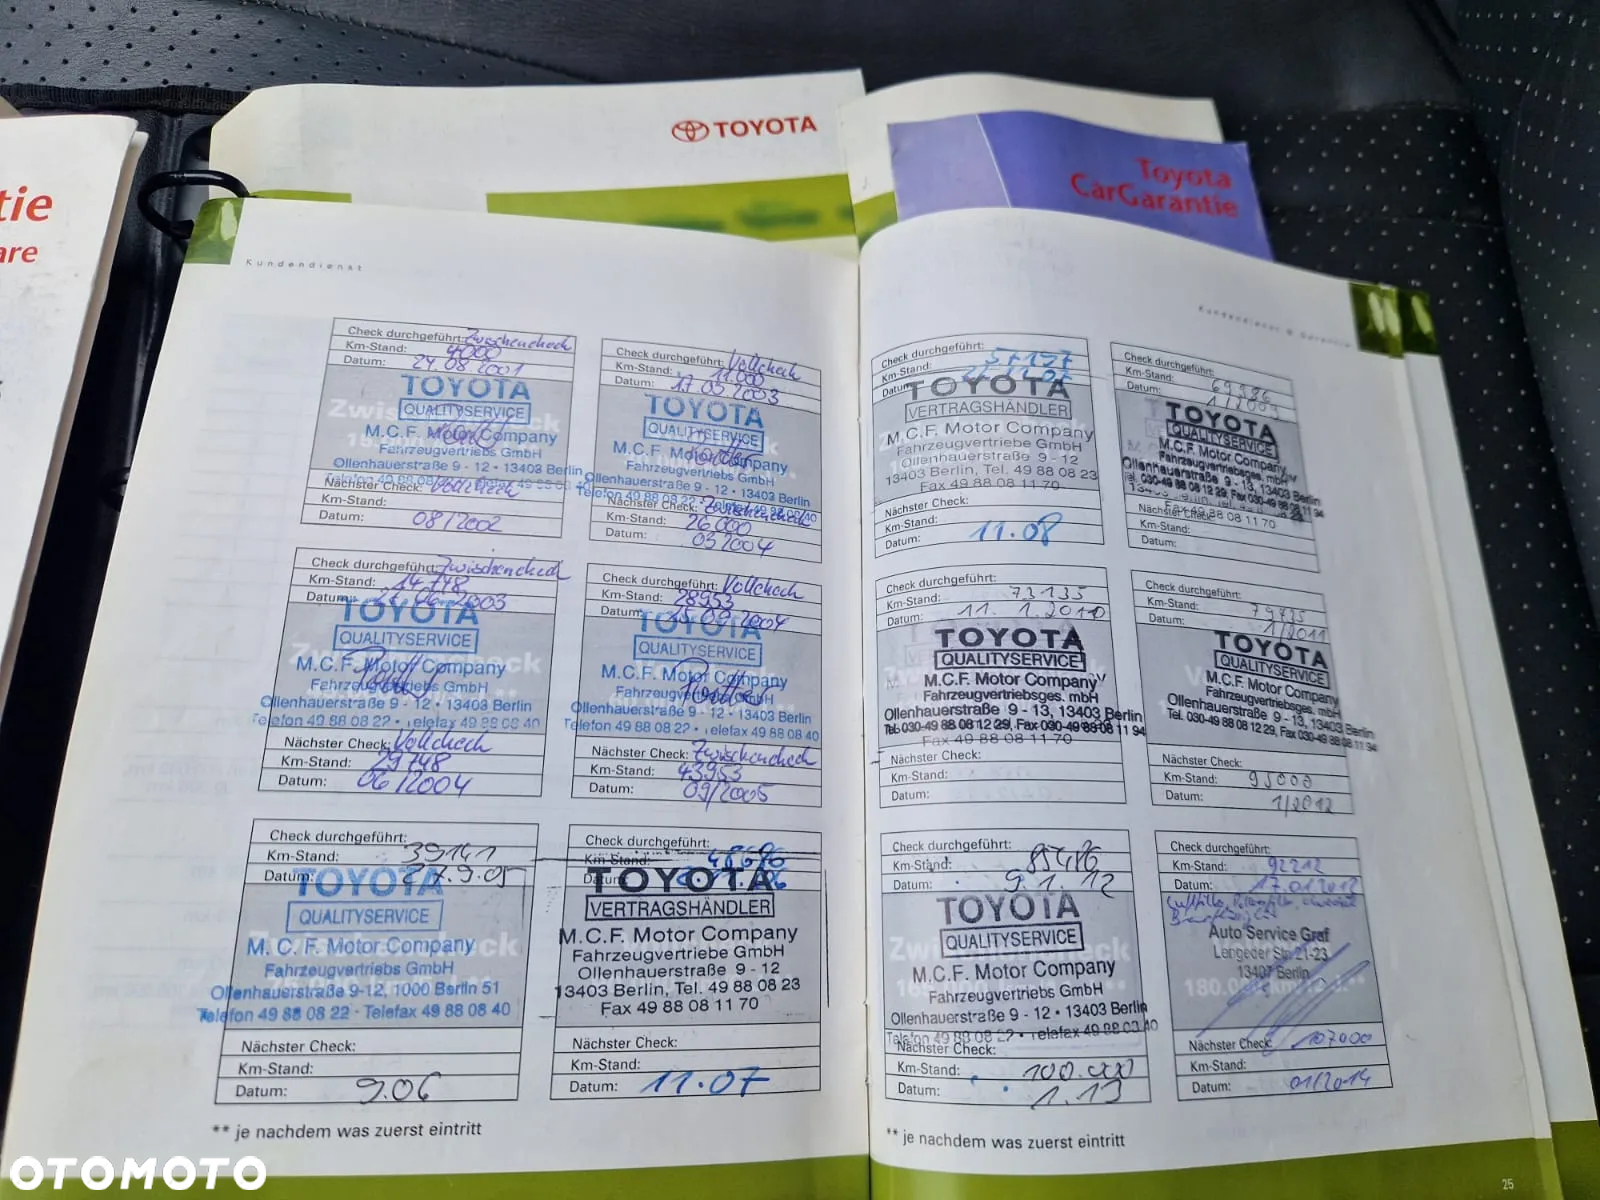 tie
are
TOYOTA
Toyota
CarGarantie
Kundendienst
Kundendienst & Garantie
Check durchgeführt: Zwischencheck
Km-Stand: 4000
Datum: 24.08.2001
TOYOTA
QUALITYSERVICE
M.C.F. Motor Company
Fahrzeugvertriebs GmbH
Ollenhauerstraße 9 - 12 • 13403 Berlin
Nächster Check: Vollcheck
Km-Stand:
Datum: 08/2002
Check durchgeführt: Vollcheck
Km-Stand: 11.000
Datum: 17.03.2003
TOYOTA
QUALITYSERVICE
M.C.F. Motor Company
Fahrzeugvertriebs GmbH
Ollenhauerstraße 9 - 12 • 13403 Berlin
Telefon 49 88 08 22 • Telefax 49 88 08 40
Nächster Check: Zwischencheck
Km-Stand: 26.000
Datum: 03/2004
Check durchgeführt: Zwischencheck
Km-Stand: 14748
Datum: 06.2003
TOYOTA
QUALITYSERVICE
M.C.F. Motor Company
Fahrzeugvertriebs GmbH
Ollenhauerstraße 9 - 12 • 13403 Berlin
Telefon 49 88 08 22 • Telefax 49 88 08 40
Nächster Check: Vollcheck
Km-Stand: 29748
Datum: 06/2004
Check durchgeführt: Vollcheck
Km-Stand: 28953
Datum: 09.2004
TOYOTA
QUALITYSERVICE
M.C.F. Motor Company
Fahrzeugvertriebs GmbH
Ollenhauerstraße 9 - 12 • 13403 Berlin
Telefon 49 88 08 22 • Telefax 49 88 08 40
Nächster Check: Zwischencheck
Km-Stand: 43953
Datum: 09/2005
Check durchgeführt:
Km-Stand: 39141
Datum: 27.9.05
TOYOTA
QUALITYSERVICE
M. C. F. Motor Company
Fahrzeugvertriebs GmbH
Ollenhauerstraße 9-12, 1000 Berlin 51
Telefon 49 88 08 22 · Telefax 49 88 08 40
Nächster Check:
Km-Stand:
Datum: 9.06
Check durchgeführt:
Km-Stand: 48696
Datum:
TOYOTA
VERTRAGSHÄNDLER
M.C.F. Motor Company
Fahrzeugvertriebe GmbH
Ollenhauerstraße 9 - 12
13403 Berlin, Tel. 49 88 08 23
Fax 49 88 08 11 70
Nächster Check:
Km-Stand:
Datum: 11.07
** je nachdem was zuerst eintritt
Check durchgeführt:
Km-Stand: 57157
Datum:
TOYOTA
VERTRAGSHÄNDLER
M.C.F. Motor Company
Fahrzeugvertriebe GmbH
Ollenhauerstraße 9 - 12
13403 Berlin, Tel. 49 88 08 23
Fax 49 88 08 11 70
Nächster Check:
Km-Stand:
Datum: 11.08
Check durchgeführt:
Km-Stand: 69986
Datum: 1/2009
TOYOTA
QUALITYSERVICE
M.C.F. Motor Company
Fahrzeugvertriebsges. mbH
Ollenhauerstraße 9 - 13, 13403 Berlin
Tel. 030-49 88 08 12 29, Fax 030-49 88 08 11 94
Fax 49 88 08 11 70
Nächster Check:
Km-Stand:
Datum:
Check durchgeführt:
Km-Stand: 73135
Datum: 11. 1. 2010
TOYOTA
QUALITYSERVICE
M.C.F. Motor Company
Fahrzeugvertriebsges. mbH
Ollenhauerstraße 9 - 13, 13403 Berlin
Tel. 030-49 88 08 12 29, Fax 030-49 88 08 11 94
Fax 49 88 08 11 70
Nächster Check:
Km-Stand:
Datum:
Check durchgeführt:
Km-Stand: 79435
Datum: 1/2011
TOYOTA
QUALITYSERVICE
M.C.F. Motor Company
Fahrzeugvertriebsges. mbH
Ollenhauerstraße 9 - 13, 13403 Berlin
Tel. 030-49 88 08 12 29, Fax 030-49 88 08 11 94
Nächster Check:
Km-Stand: 95000
Datum: 1/2012
Check durchgeführt:
Km-Stand: 85486
Datum: 9.1.12
TOYOTA
QUALITYSERVICE
M.C.F. Motor Company
Fahrzeugvertriebs GmbH
Ollenhauerstraße 9 - 12 • 13403 Berlin
Telefon 49 88 08 22 • Telefax 49 88 08 40
Nächster Check:
Km-Stand: 100.000
Datum: 1.13
Check durchgeführt:
Km-Stand: 92212
Datum: 17.01.2013
Auto Service Graf
Lengeder Str. 21-23
13407 Berlin
Nächster Check: 107000
Km-Stand:
Datum: 01/2014
** je nachdem was zuerst eintritt
25
OTOMOTO